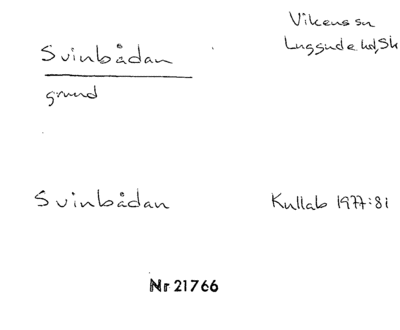 Svinbådan
grund
Vikens sn
Luggude hd, Sk
Svinbådan
Kullab 1977:81
Nr 21766